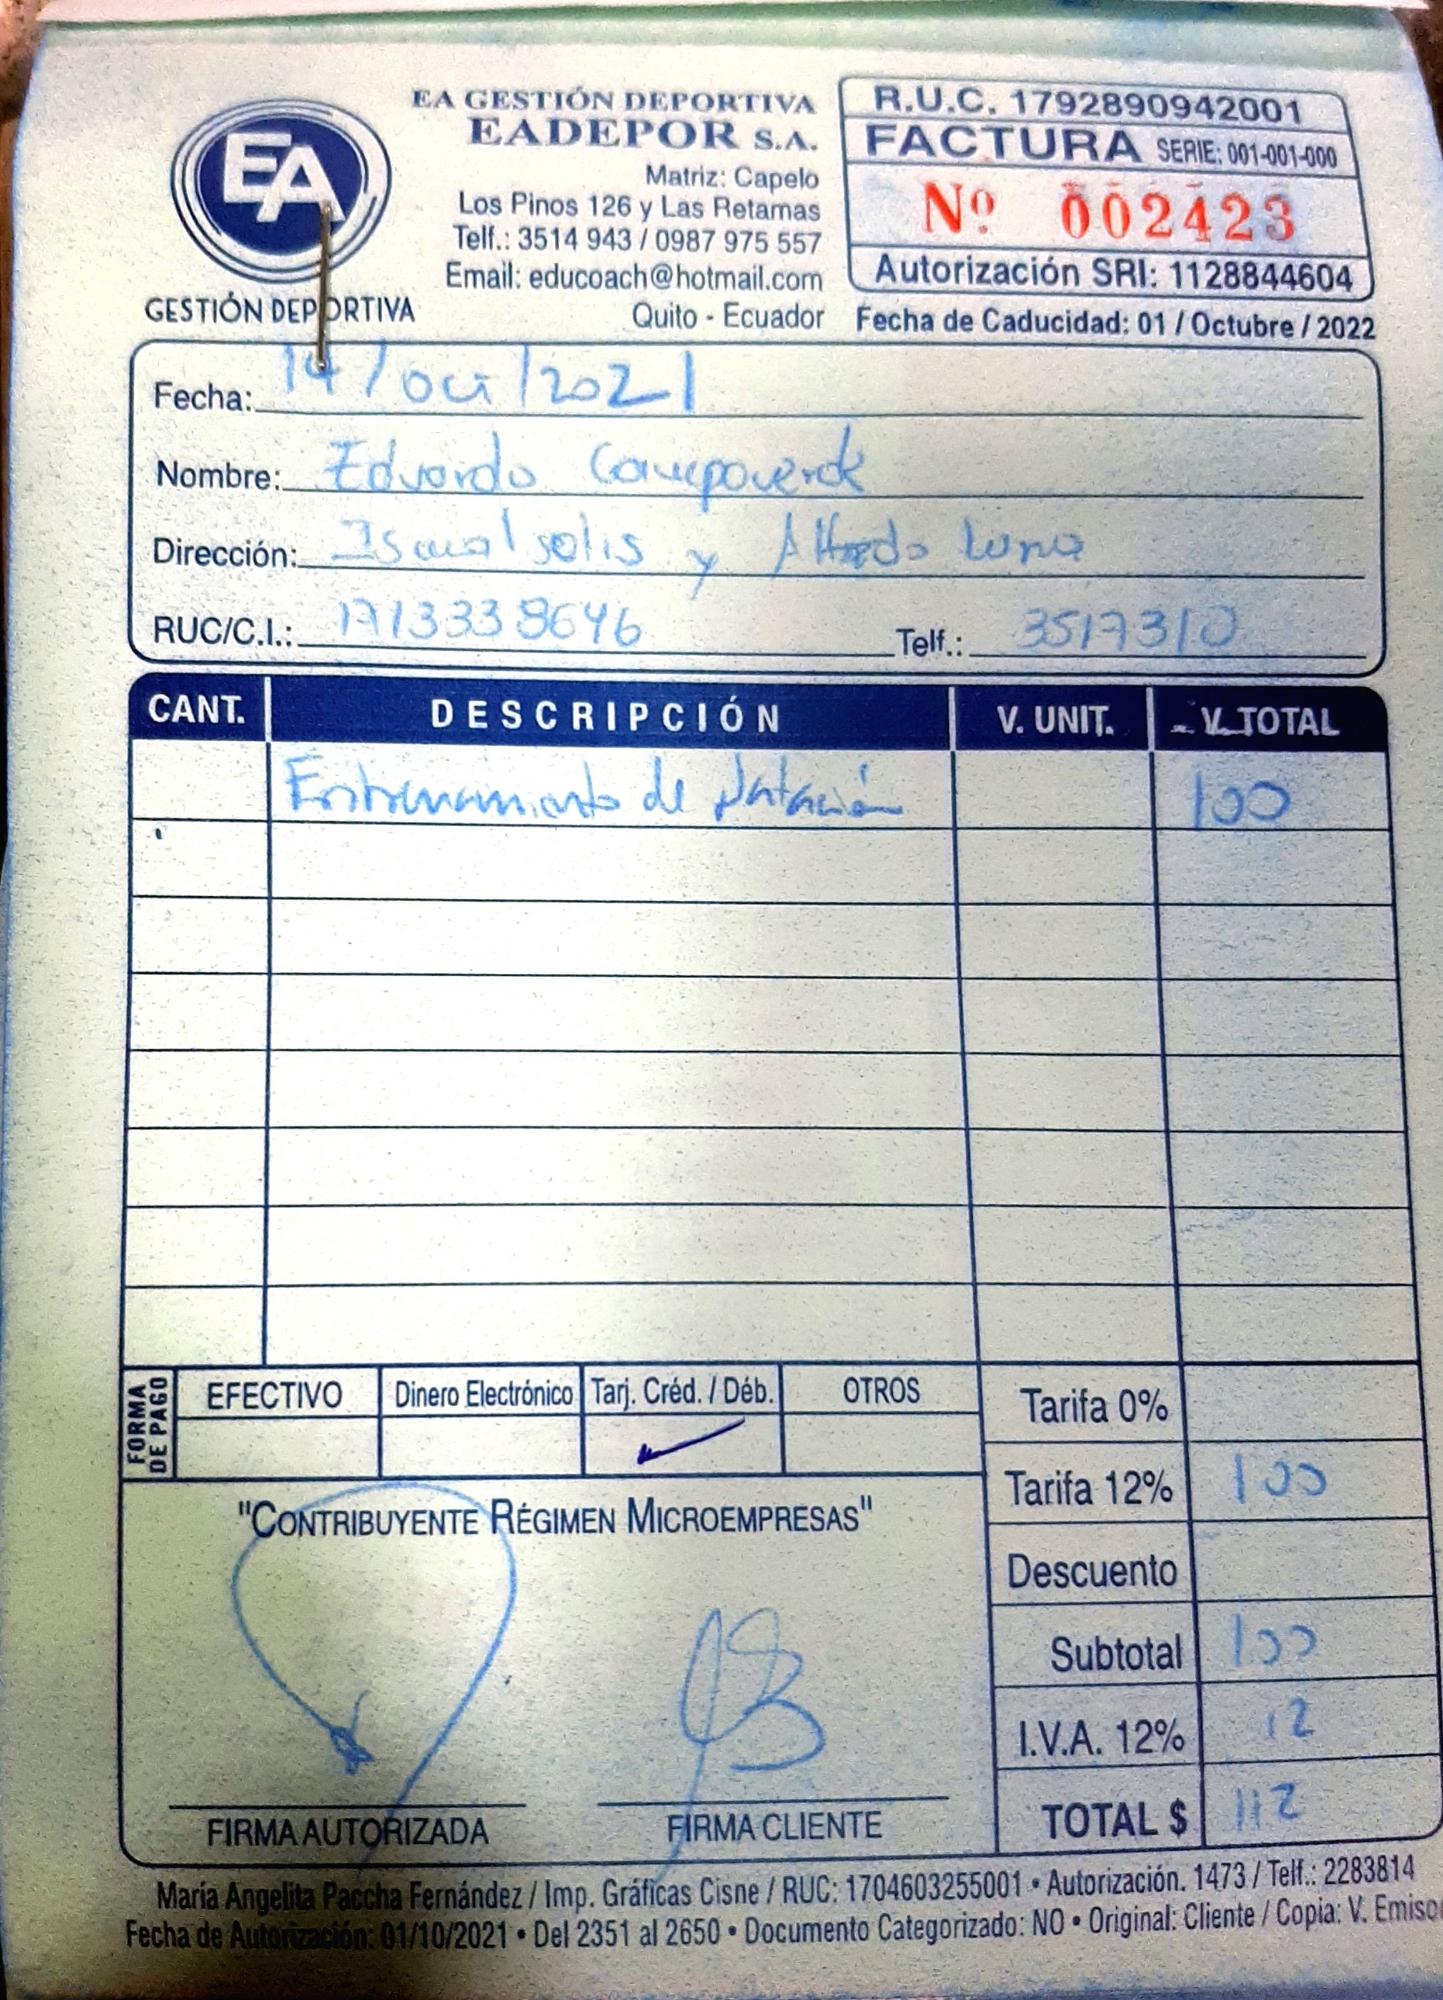 EA
GESTIÓN DEPORTIVA
EA GESTIÓN DEPORTIVA
EADEPOR S.A.
Matriz: Capelo
Los Pinos 126 y Las Retamas
Telf.: 3514 943 / 0987 975 557
Email: educoach@hotmail.com
Quito - Ecuador
R.U.C. 1792890942001
FACTURA SERIE: 001-001-000
Nº 002423
Autorización SRI: 1128844604
Fecha de Caducidad: 01 / Octubre / 2022
Fecha: 14 / oct / 2021
Nombre: Eduardo Campoverde
Dirección: Ismael solis y Alfredo Luna
RUC/C.I.: 1713338646 Telf.: 3517310
CANT. DESCRIPCIÓN V. UNIT. V. TOTAL
Entrenamiento de Natación 100
FORMA DE PAGO
EFECTIVO Dinero Electrónico Tarj. Créd. / Déb. OTROS
Tarifa 0%
Tarifa 12% 100
Descuento
Subtotal 100
I.V.A. 12% 12
TOTAL $ 112
"CONTRIBUYENTE RÉGIMEN MICROEMPRESAS"
FIRMA AUTORIZADA FIRMA CLIENTE
María Angelita Paccha Fernández / Imp. Gráficas Cisne / RUC: 1704603255001 • Autorización. 1473 / Telf.: 2283814
Fecha de Autorización: 01/10/2021 • Del 2351 al 2650 • Documento Categorizado: NO • Original: Cliente / Copia: V. Emiso